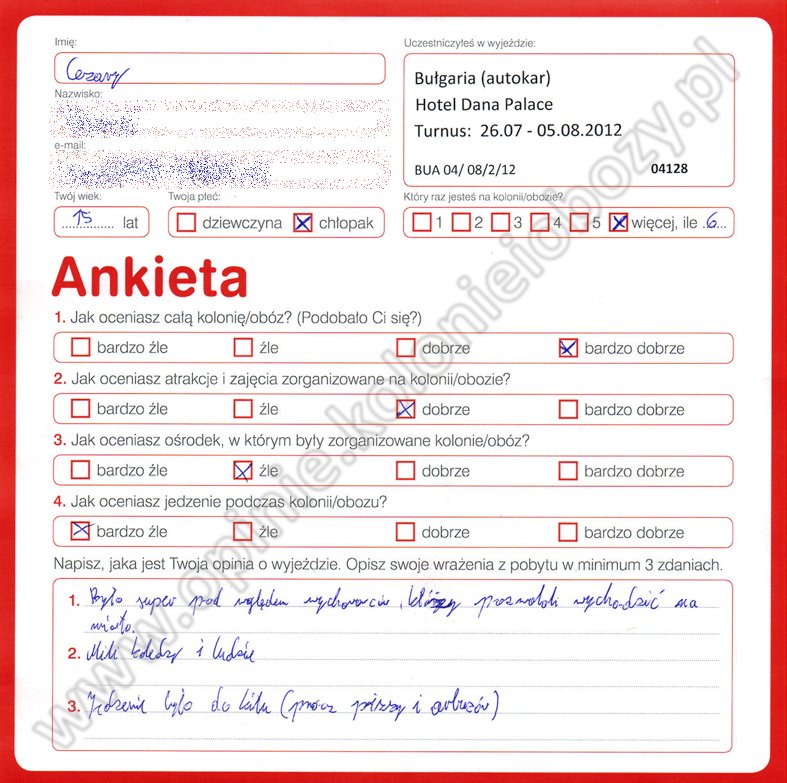 Imię:
Cezary
Nazwisko:
e-mail:
Twój wiek:
15 lat
Twoja płeć:
dziewczyna chłopak
Uczestniczyłeś w wyjeździe:
Bułgaria (autokar)
Hotel Dana Palace
Turnus: 26.07 - 05.08.2012
BUA 04/ 08/2/12 04128
Który raz jesteś na kolonii/obozie?
1 2 3 4 5 więcej, ile .6...
Ankieta
1. Jak oceniasz całą kolonię/obóz? (Podobało Ci się?)
bardzo źle źle dobrze bardzo dobrze
2. Jak oceniasz atrakcje i zajęcia zorganizowane na kolonii/obozie?
bardzo źle źle dobrze bardzo dobrze
3. Jak oceniasz ośrodek, w którym były zorganizowane kolonie/obóz?
bardzo źle źle dobrze bardzo dobrze
4. Jak oceniasz jedzenie podczas kolonii/obozu?
bardzo źle źle dobrze bardzo dobrze
Napisz, jaka jest Twoja opinia o wyjeździe. Opisz swoje wrażenia z pobytu w minimum 3 zdaniach.
1. Było super pod względem wychowawców, którzy pozwolili wychodzić na
miasto.
2. Mili koledzy i ludzie
3. Jedzenie było do kitu (prócz pizzy i arbuzów)
www.opinie.kolonieiobozy.pl